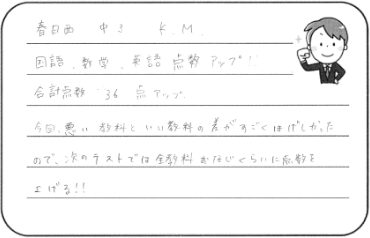 春日西 中3 K.M.
国語、数学、英語 点数アップ!!
合計点数:36 点アップ
今回、悪い教科といい教科の差がすごくはげしかった
ので、次のテストでは全教科おなじくらいに点数を
上げる!!